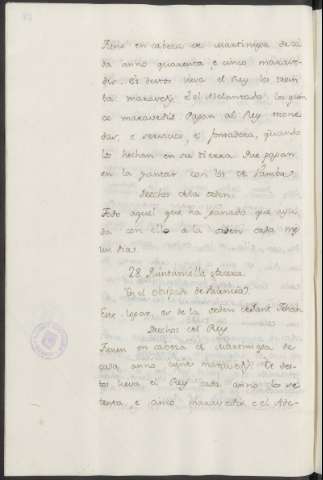 tiene en cabeza de Martiniega de ca
da anno quarenta e cinco marave-
dis. Et destos lieva el Rey los trein
ta maravedis. E el Adelantado los quin
ce maravedis. Pagan al Rey mone
das, e servicios, e fonsadera, quando
los hechan en su tierra. Que pagan
en la yantar con los de
Derechos de la orden.
Todo aquel que ha ganado que ayu
da con ello a la orden cada me
un dia.
28
En el obispado de Palencia
Este logar, es de la orden de Sant Johan
Derechos del Rey
Tienen en cabeza de Martiniega de
cada anno maravedis. E des-
tos lieva el Rey cada anno los se
tenta, e cinco maravedis e el Ade-